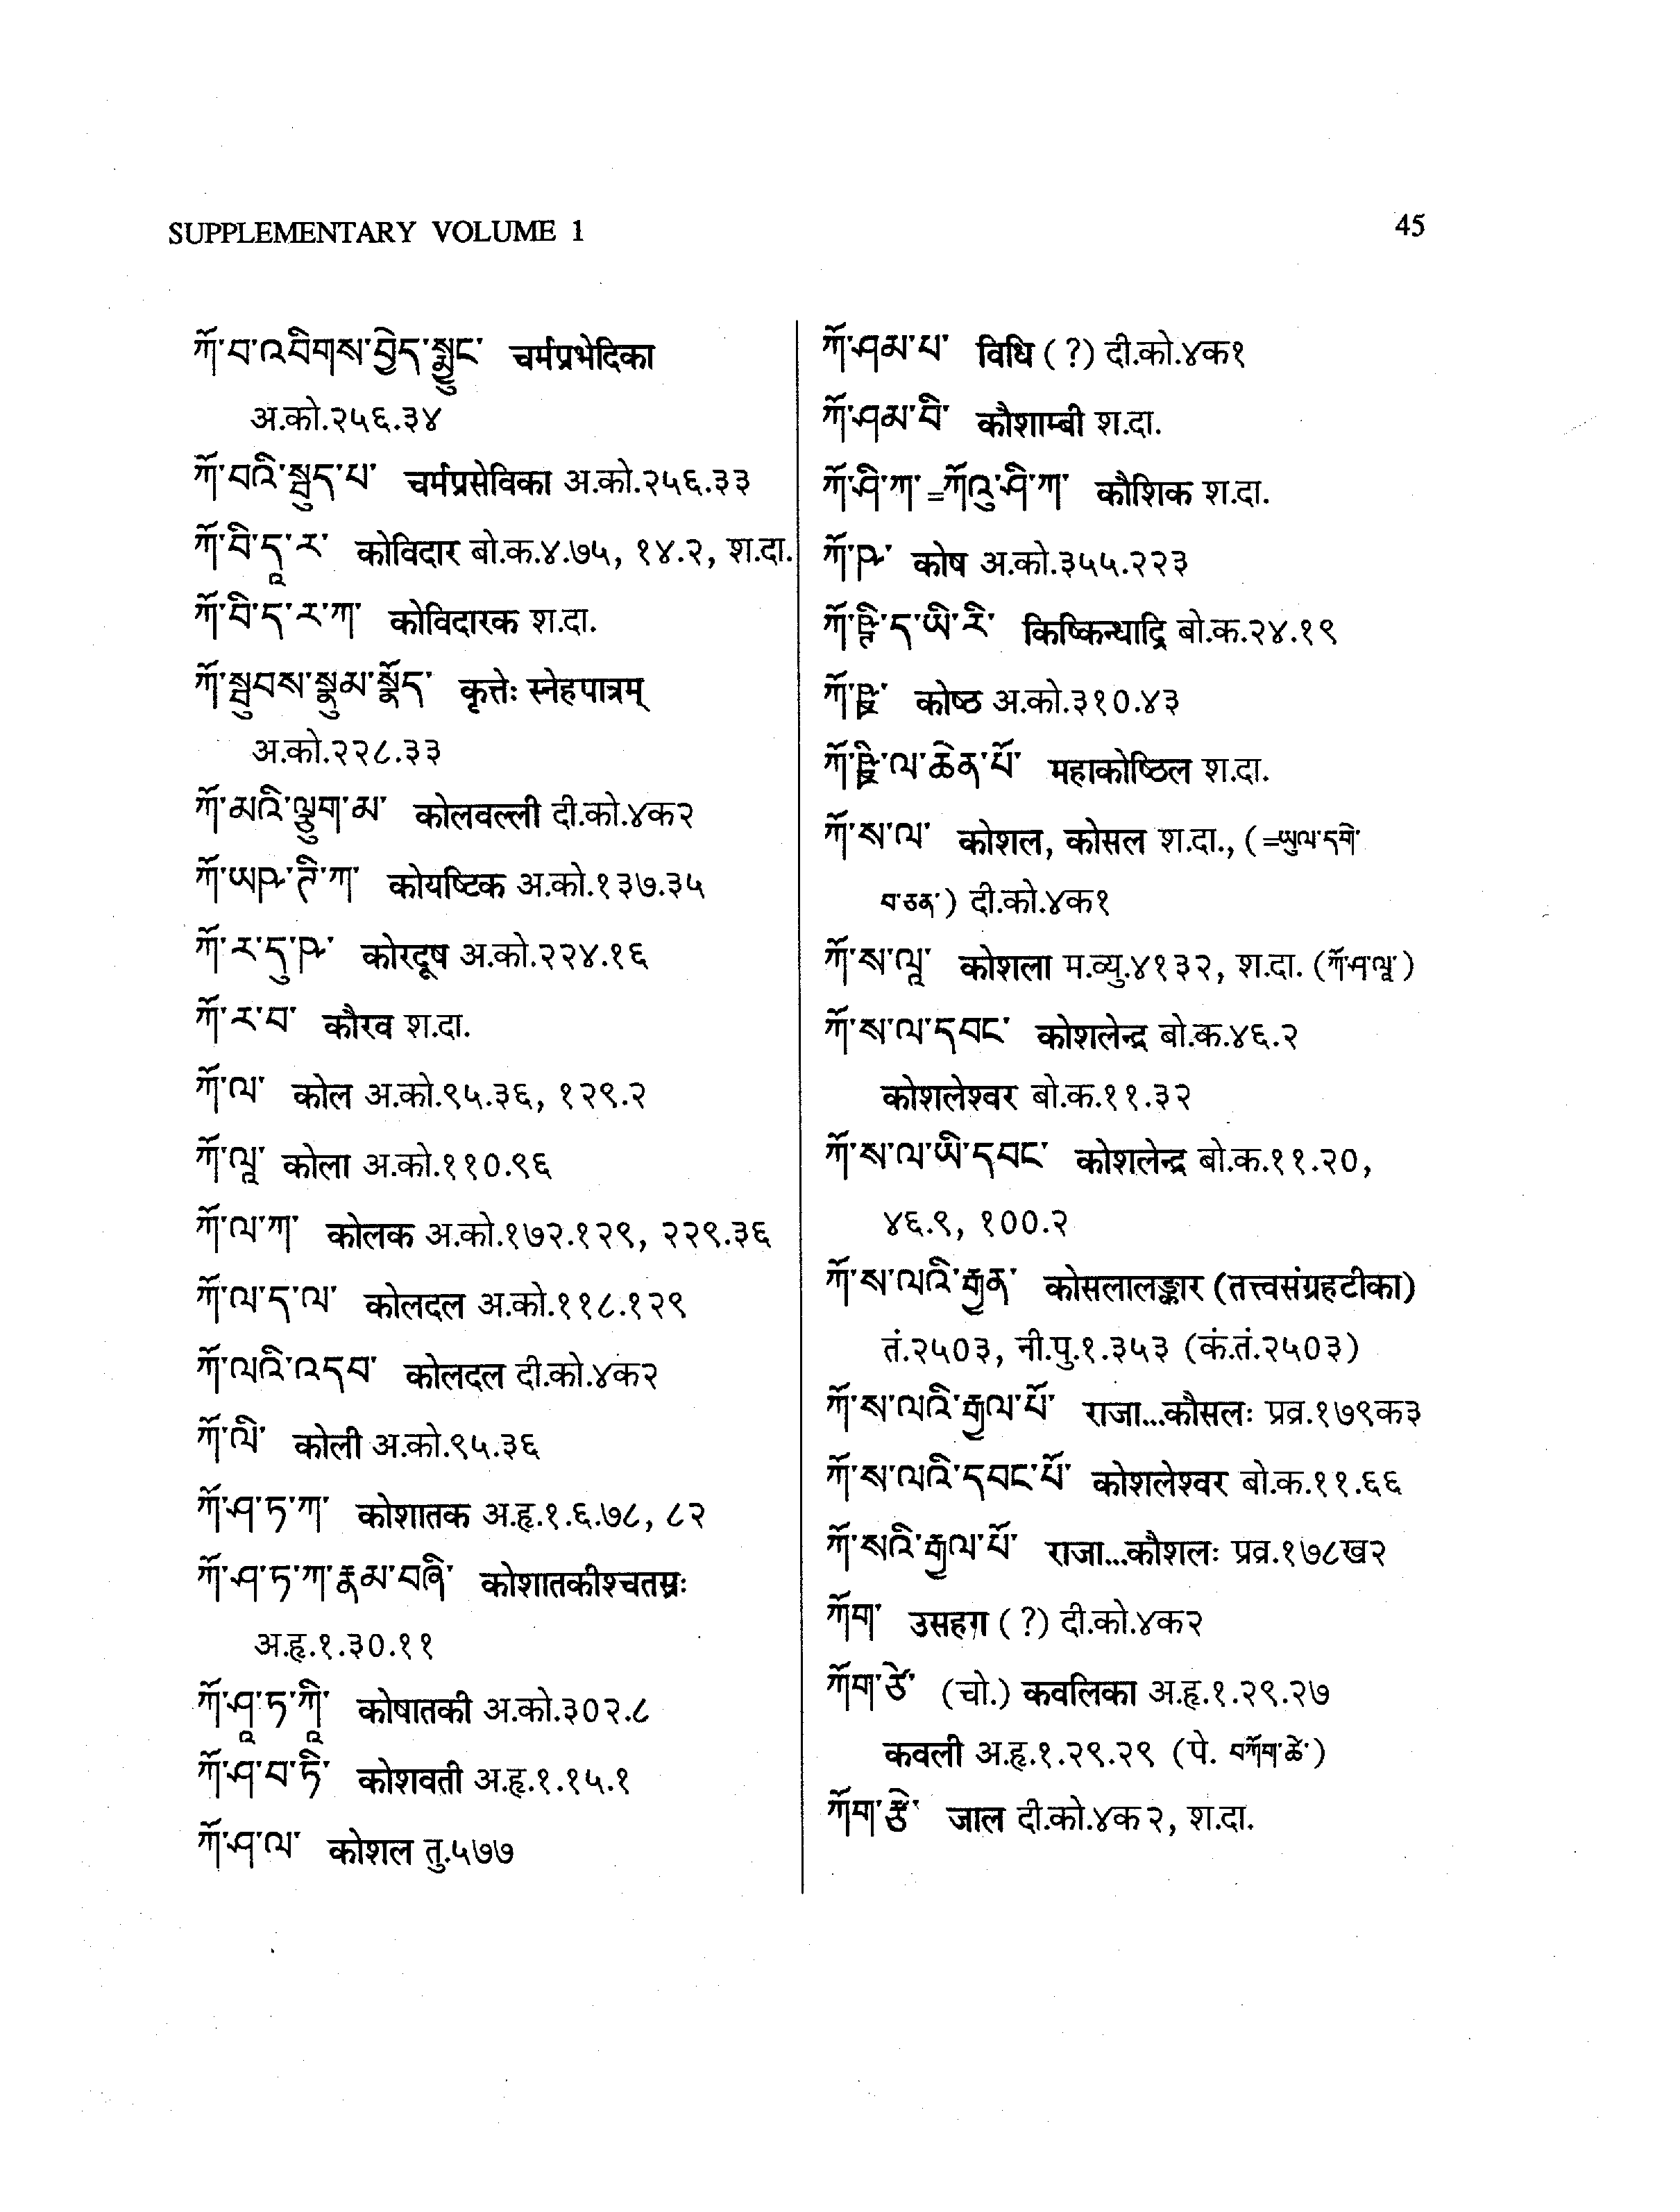 SUPPLEMENTARY VOLUME 1
45
ཀོ་བ་འབིགས་བྱེད་སྨྱུང་ चर्मप्रभेदिका
अ.को.२५६.३४
ཀོ་བའི་སྦུད་པ་ चर्मप्रसेविका अ.को.२५६.३३
ཀོ་བི་དཱ་ར་ कोविदार बो.क.४.७५, १४.२, श.दा.
ཀོ་བི་ད་ར་ཀ་ कोविदारक श.दा.
ཀོ་སྦུབས་སྣུམ་སྣོད་ कृत्तेः स्नेहपात्रम्
अ.को.२२८.३३
ཀོ་མའི་ལྕུག་མ་ कोलवल्ली दी.को.४क२
ཀོ་ཡཥ་ཊི་ཀ་ कोयष्टिक अ.को.१३७.३५
ཀོ་ར་དུ་ཥ་ कोरदूष अ.को.२२४.१६
ཀོ་ར་བ་ कौरव श.दा.
ཀོ་ལ་ कोल अ.को.९५.३६, १२९.२
ཀོ་ལཱ་ कोला अ.को.११०.९६
ཀོ་ལ་ཀ་ कोलक अ.को.१७२.१२९, २२९.३६
ཀོ་ལ་ད་ལ་ कोलदल अ.को.११८.१२९
ཀོ་ལའི་འདབ་ कोलदल दी.को.४क२
ཀོ་ལི་ कोली अ.को.९५.३६
ཀོ་ཤ་ཏ་ཀ་ कोशातक अ.हृ.१.६.७८, ८२
ཀོ་ཤ་ཏ་ཀ་རྣམ་བཞི་ कोशातकीश्चतस्रः
अ.हृ.१.३०.११
ཀོ་ཤཱ་ཏ་ཀཱི་ कोषातकी अ.को.३०२.८
ཀོ་ཤ་བ་ཏི་ कोशवती अ.हृ.१.१५.१
ཀོ་ཤ་ལ་ कोशल तु.५७७
ཀོ་ཤམ་པ་ विधि (?) दी.को.४क१
ཀོ་ཤམ་བི་ कौशाम्बी श.दा.
ཀོ་ཤི་ཀ་=ཀོའུ་ཤི་ཀ་ कौशिक श.दा.
ཀོ་ཥ་ कोष अ.को.३५५.२२३
किष्किन्धाद्रि बो.क.२४.१९
ཀོ་ཥྛ་ कोष्ठ अ.को.३१०.४३
ཀོ་ཥྛི་ལ་ཆེན་པོ་ महाकोष्ठिल श.दा.
ཀོ་ས་ལ་ कोशल, कोसल श.दा., (=ཡུལ་དགེ་
བ་ཅན་) दी.को.४क१
ཀོ་ས་ལཱ་ कोशला म.व्यु.४१३२, श.दा. (ཀོ་ཤ་ལཱ་)
ཀོ་ས་ལ་དབང་ कोशलेन्द्र बो.क.४६.२
कोशलेश्वर बो.क.११.३२
ཀོ་ས་ལ་ཡི་དབང་ कोशलेन्द्र बो.क.११.२०,
४६.९, १००.२
ཀོ་ས་ལའི་རྒྱན་ कोसलालङ्कार (तत्त्वसंग्रहटीका)
तं.२५०३, नी.पु.१.३५३ (कं.तं.२५०३)
ཀོ་ས་ལའི་རྒྱལ་པོ་ राजा...कौसलः प्रव्र.१७९क३
ཀོ་ས་ལའི་དབང་པོ་ कोशलेश्वर बो.क.११.६६
ཀོ་སའི་རྒྱལ་པོ་ राजा...कौशलः प्रव्र.१७८ख२
ཀོག་ उसहग (?) दी.को.४क२
ཀོག་ཙེ་ (चो.) कवलिका अ.हृ.१.२९.२७
कवली अ.हृ.१.२९.२९ (पे. བཀོག་ཆེ་)
ཀོག་རྩེ་ जाल दी.को.४क२, श.दा.